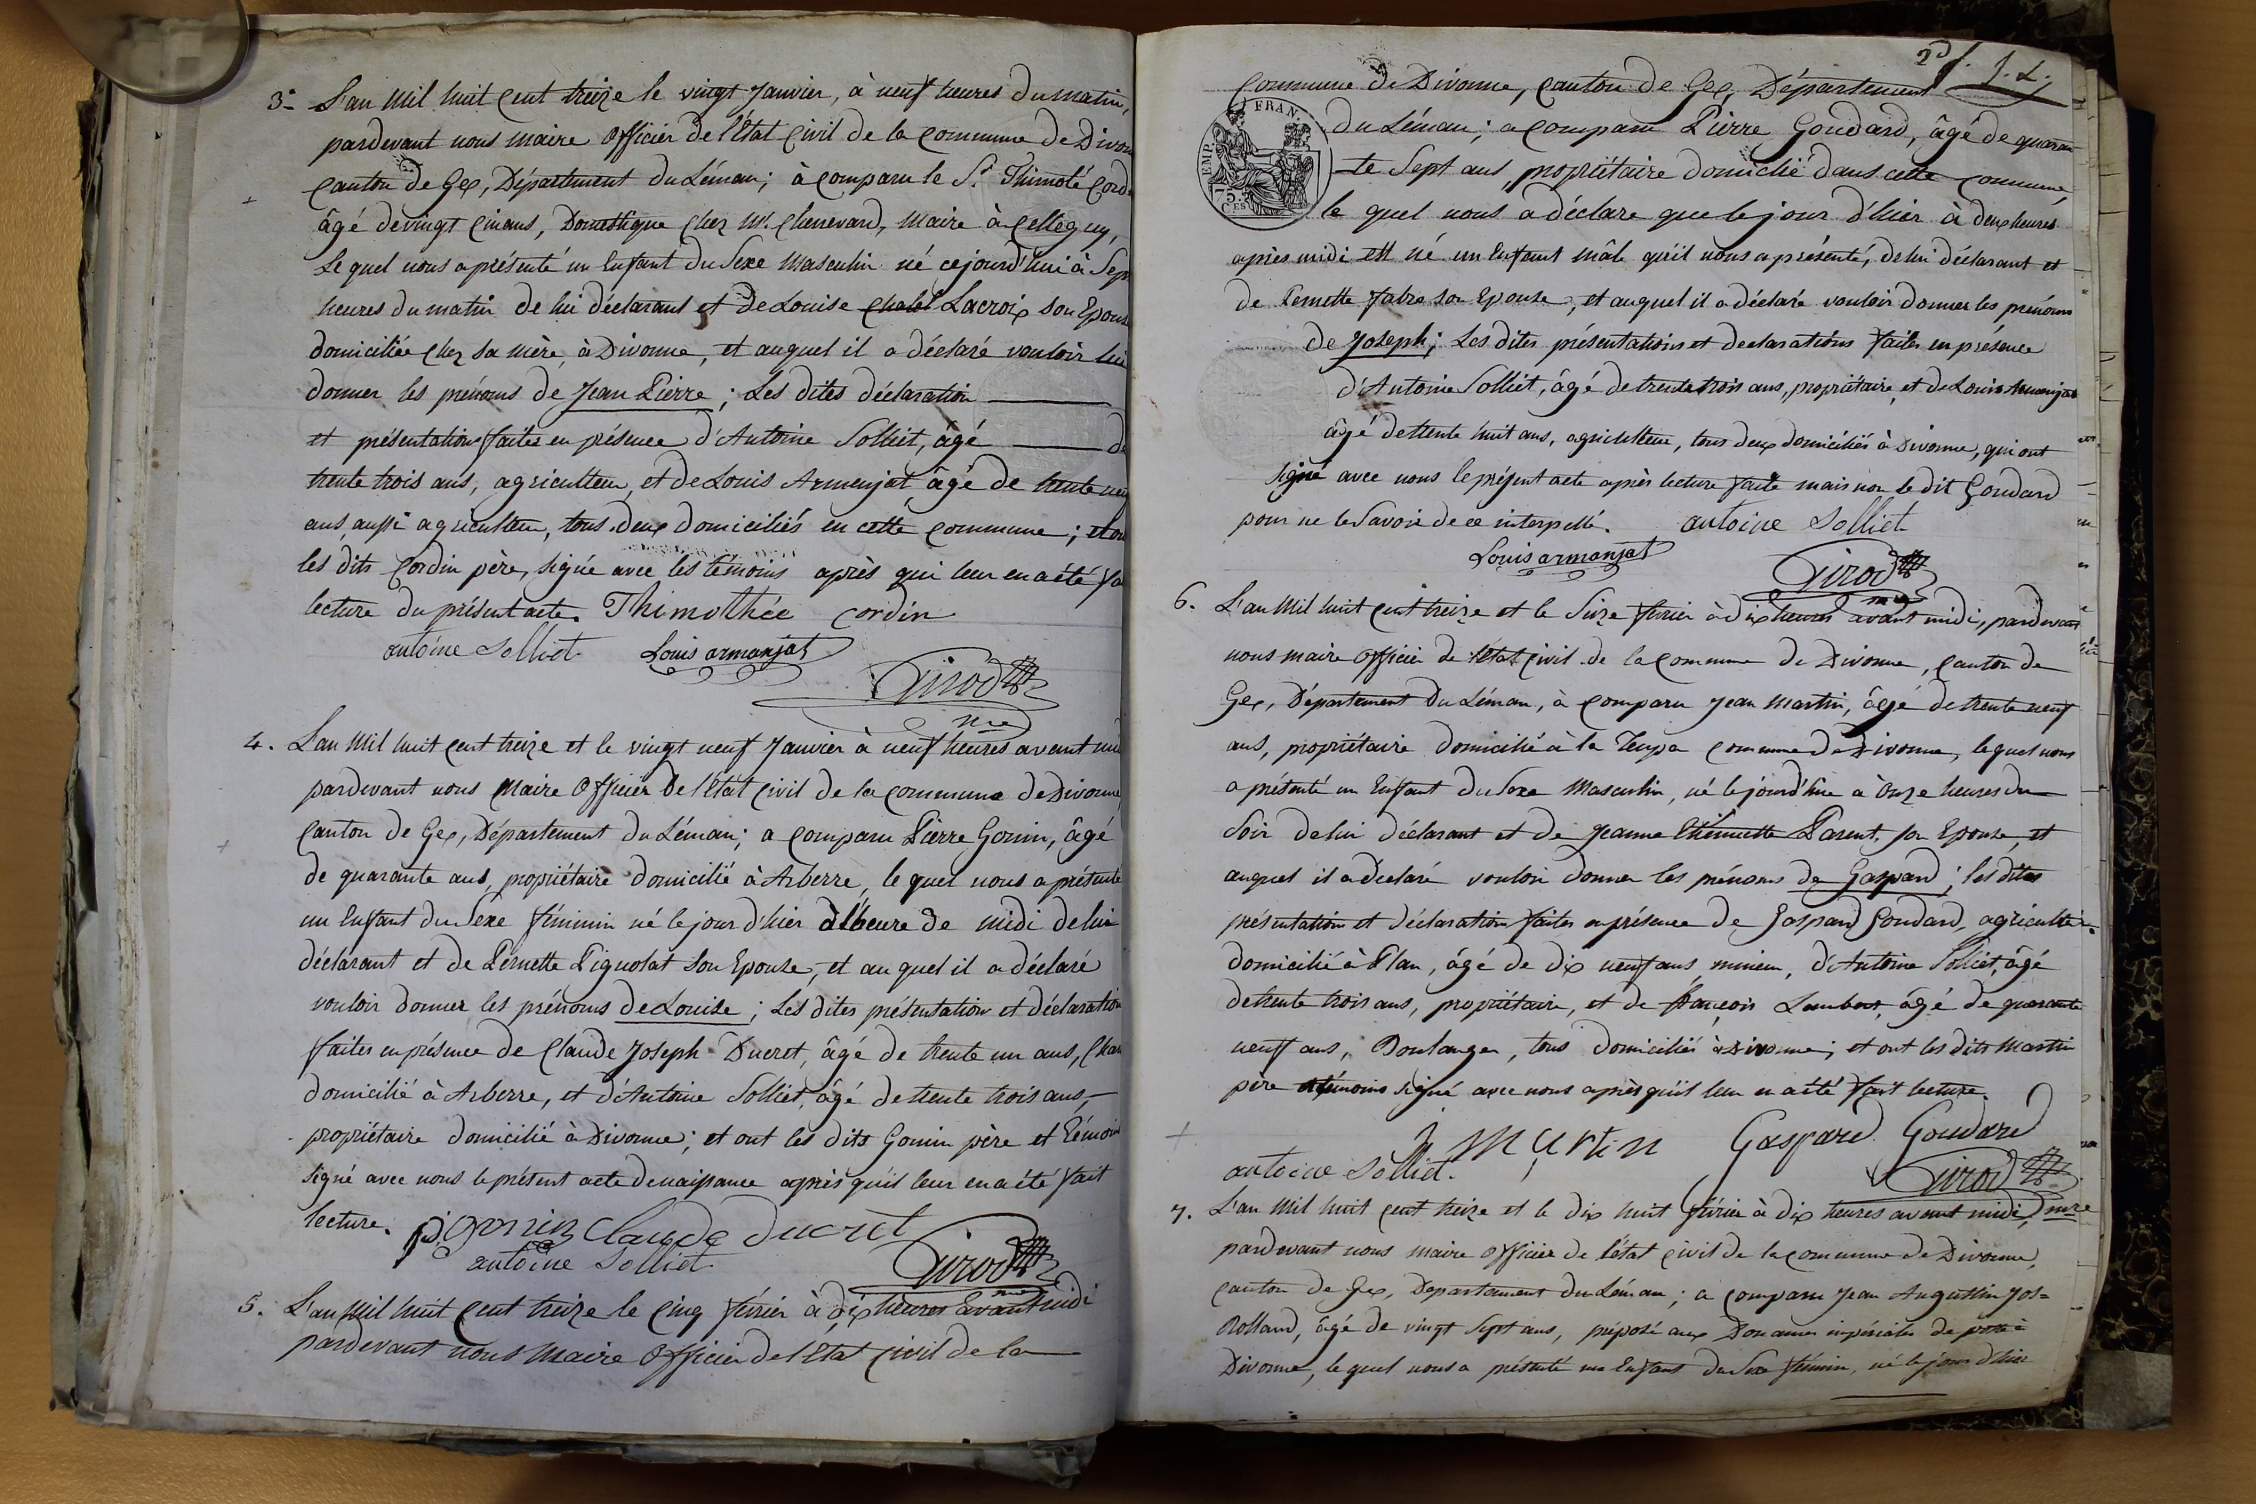 3. L'an Mil huit Cent treize le vingt Janvier, à neuf heures du matin,
pardevant nous maire Officier de l'État Civil de la Commune de Divon
Canton de Gex, Département du Léman; à Comparu le Sr. Thimoté Cord
âgé de vingt cin ans, Domestique chez Mr. Chenevard, Maire à
Le quel nous a présenté un Enfant du Sexe Masculin né ce jourd'hui à Sep
heures du matin de lui déclarant et de Louise Lacroix son Epouse
domiciliée chez sa mère, à Divonne, et auquel il a déclaré vouloir lui
donner les prénoms de Jean Pierre; Les dites déclaration
et présentation faites en présence d'Antoine Solliet, âgé de
trente trois ans, agriculteur, et de Louis Armenjat, âgé de trente neuf
ans, aussi agriculteur, tous deux domiciliés en cette Commune; et on
les dits Cordin père, signé avec les témoins après qui leur en a été fa
lecture du présent acte. Thimothée Cordin
antoine Solliet Louis armanjat
Girod
mre
4. L'an Mil huit Cent treize et le vingt neuf Janvier à neuf heures avant mid
pardevant nous Maire Officier de l'État Civil de la Commune de Divonne,
Canton de Gex, Département du Léman; a Comparu Pierre Gonin, âgé
de quarante ans, propriétaire domicilié à Arberre, le quel nous a présenté
un Enfant du Sexe féminin né le jour d'hier à l'heure de midi de lui
déclarant et de Pernette Pignolat son Epouse, et au quel il a déclaré
vouloir donner les prénoms de Louise; Les dites présentation et déclaration
faites en présence de Claude Joseph Ducret, âgé de trente un ans,
domicilié à Arberre, et d'Antoine Solliet, âgé de trente trois ans,
propriétaire domicilié à Divonne; et ont les dits Gonin père et témoin
signé avec nous le présent acte de naissance après qu'il leur en a été fait
lecture. p. gonin Claude ducret
antoine Solliet Girod
mre
5. L'an Mil huit Cent treize le Cinq févrièr à dix heures avant midi
pardevant nous Maire Officier de l'État Civil de la
2d f. J. L.
Commune de Divonne, Canton de Gex, Département
EMP. FRAN.
75 CES
du Léman; a Comparu Pierre Goudard, âgé de quaran
te Sept ans, propriétaire domicilié dans cette Commune,
le quel nous a déclaré que le jour d'hier à deux heures
après midi est né un Enfant mâle qu'il nous a présenté, de lui déclarant et
de Pernette fabre son Epouse, et auquel il a déclaré vouloir donner les prénoms
de Joseph; Les dites présentations et declarations faites en présence
d'Antoine Solliet, âgé de trente trois ans, propriétaire, et de Louis Armenjat
âgé de trente huit ans, agriculteur, tous deux domiciliés à Divonne, qui ont
signé avec nous le présent acte après lecture faite mais non le dit Goudard
pour ne le Savoir de ce interpellé. antoine Solliet
Louis armanjat Girod
mre
6. L'an Mil huit Cent treize et le Seize février à dix heures avant midi, pardevant
nous maire Officier de l'état Civil de la Commune de Divonne, Canton de
Gex, Département du Léman, à Comparu Jean Martin, âgé de trente neuf
ans, propriétaire domicilié à la Commune de Divonne, lequel nous
a présenté un Enfant du Sexe Masculin, né le jourd'hier à Onze heures du
Soir de lui déclarant et de Jeanne Ethiennette Parent, son Epouse, et
auquel il a déclaré vouloir donner les prénoms de Gaspard; les dites
présentation et déclaration faites en présence de Gaspard Goudard, agriculteur
domicilié à Plan, âgé de dix neuf ans, mineur, d'Antoine Solliet, âgé
de trente trois ans, propriétaire, et de françois Lambert, âgé de quarante
neuf ans, Boulanger, tous domiciliés à Divonne; et ont les dits Martin
père et témoins signé avec nous après qu'il leur en a été fait lecture.
J Martin Gaspard Goudard
antoine Solliet. Girod
mre
7. L'an Mil huit Cent treize et le dix huit février à dix heures avant midi,
pardevant nous maire officier de l'état Civil de la Commune de Divonne,
Canton de Gex, Département du Léman; a Comparu Jean Augustin Jos=
Rolland, âgé de vingt Sept ans, préposé aux Douanes impériales de poste à
Divonne, le quel nous a présenté un Enfant du Sexe féminin, né le jour d'hier